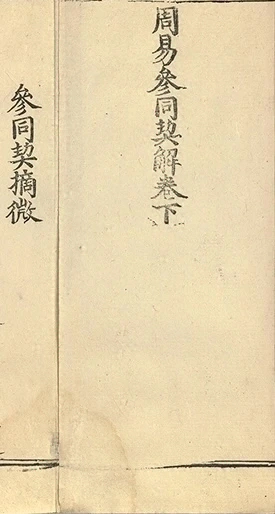 周易參同契解卷下
參同契摘微